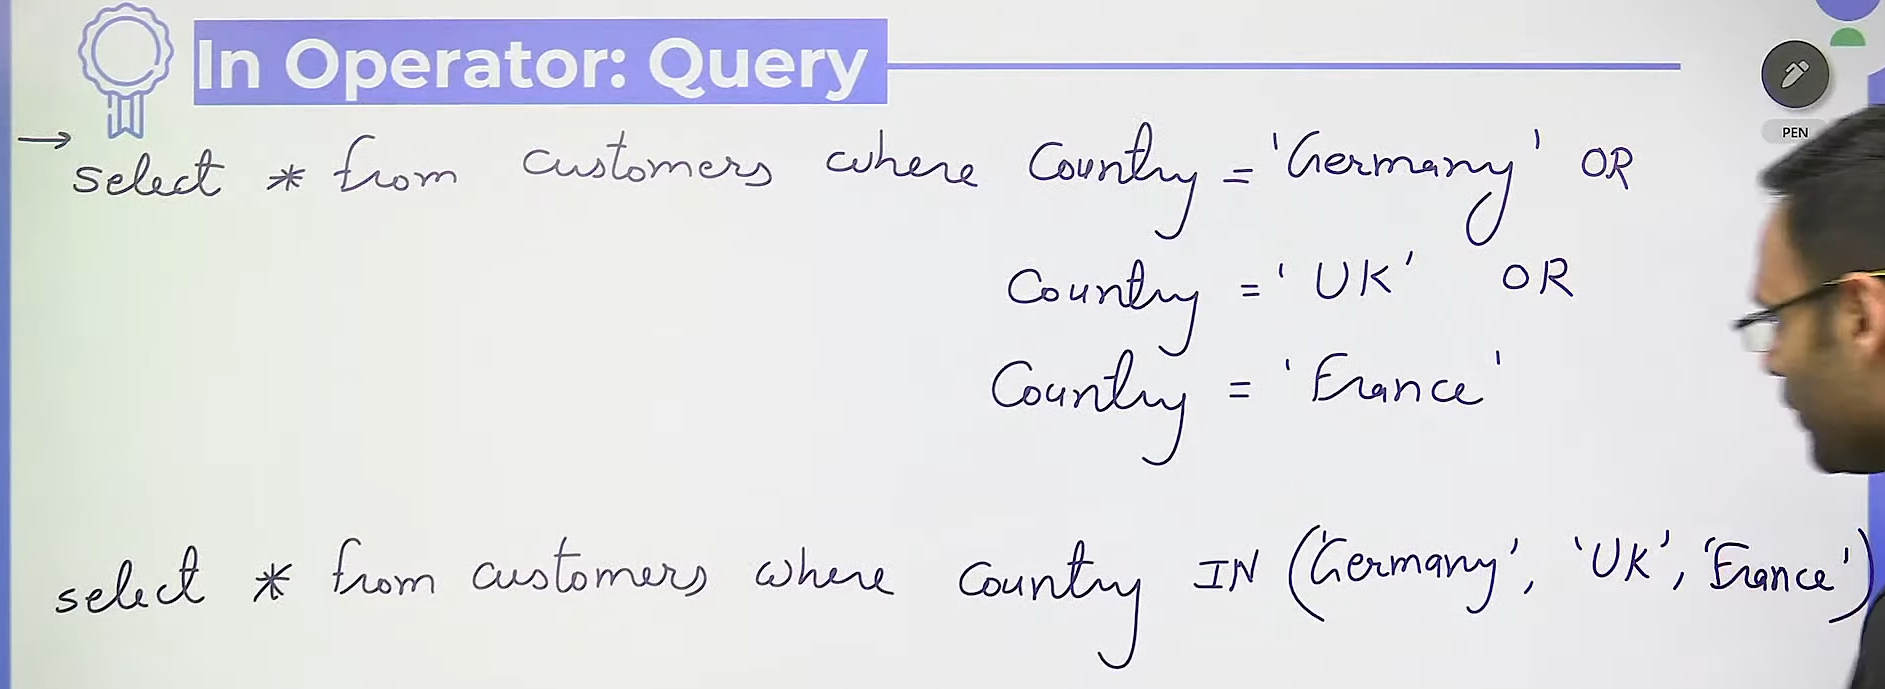 In Operator: Query
PEN
→ select * from customers where Country = 'Germany' OR
Country = 'UK' OR
Country = 'France'
select * from customers where Country IN ('Germany', 'UK', 'France')